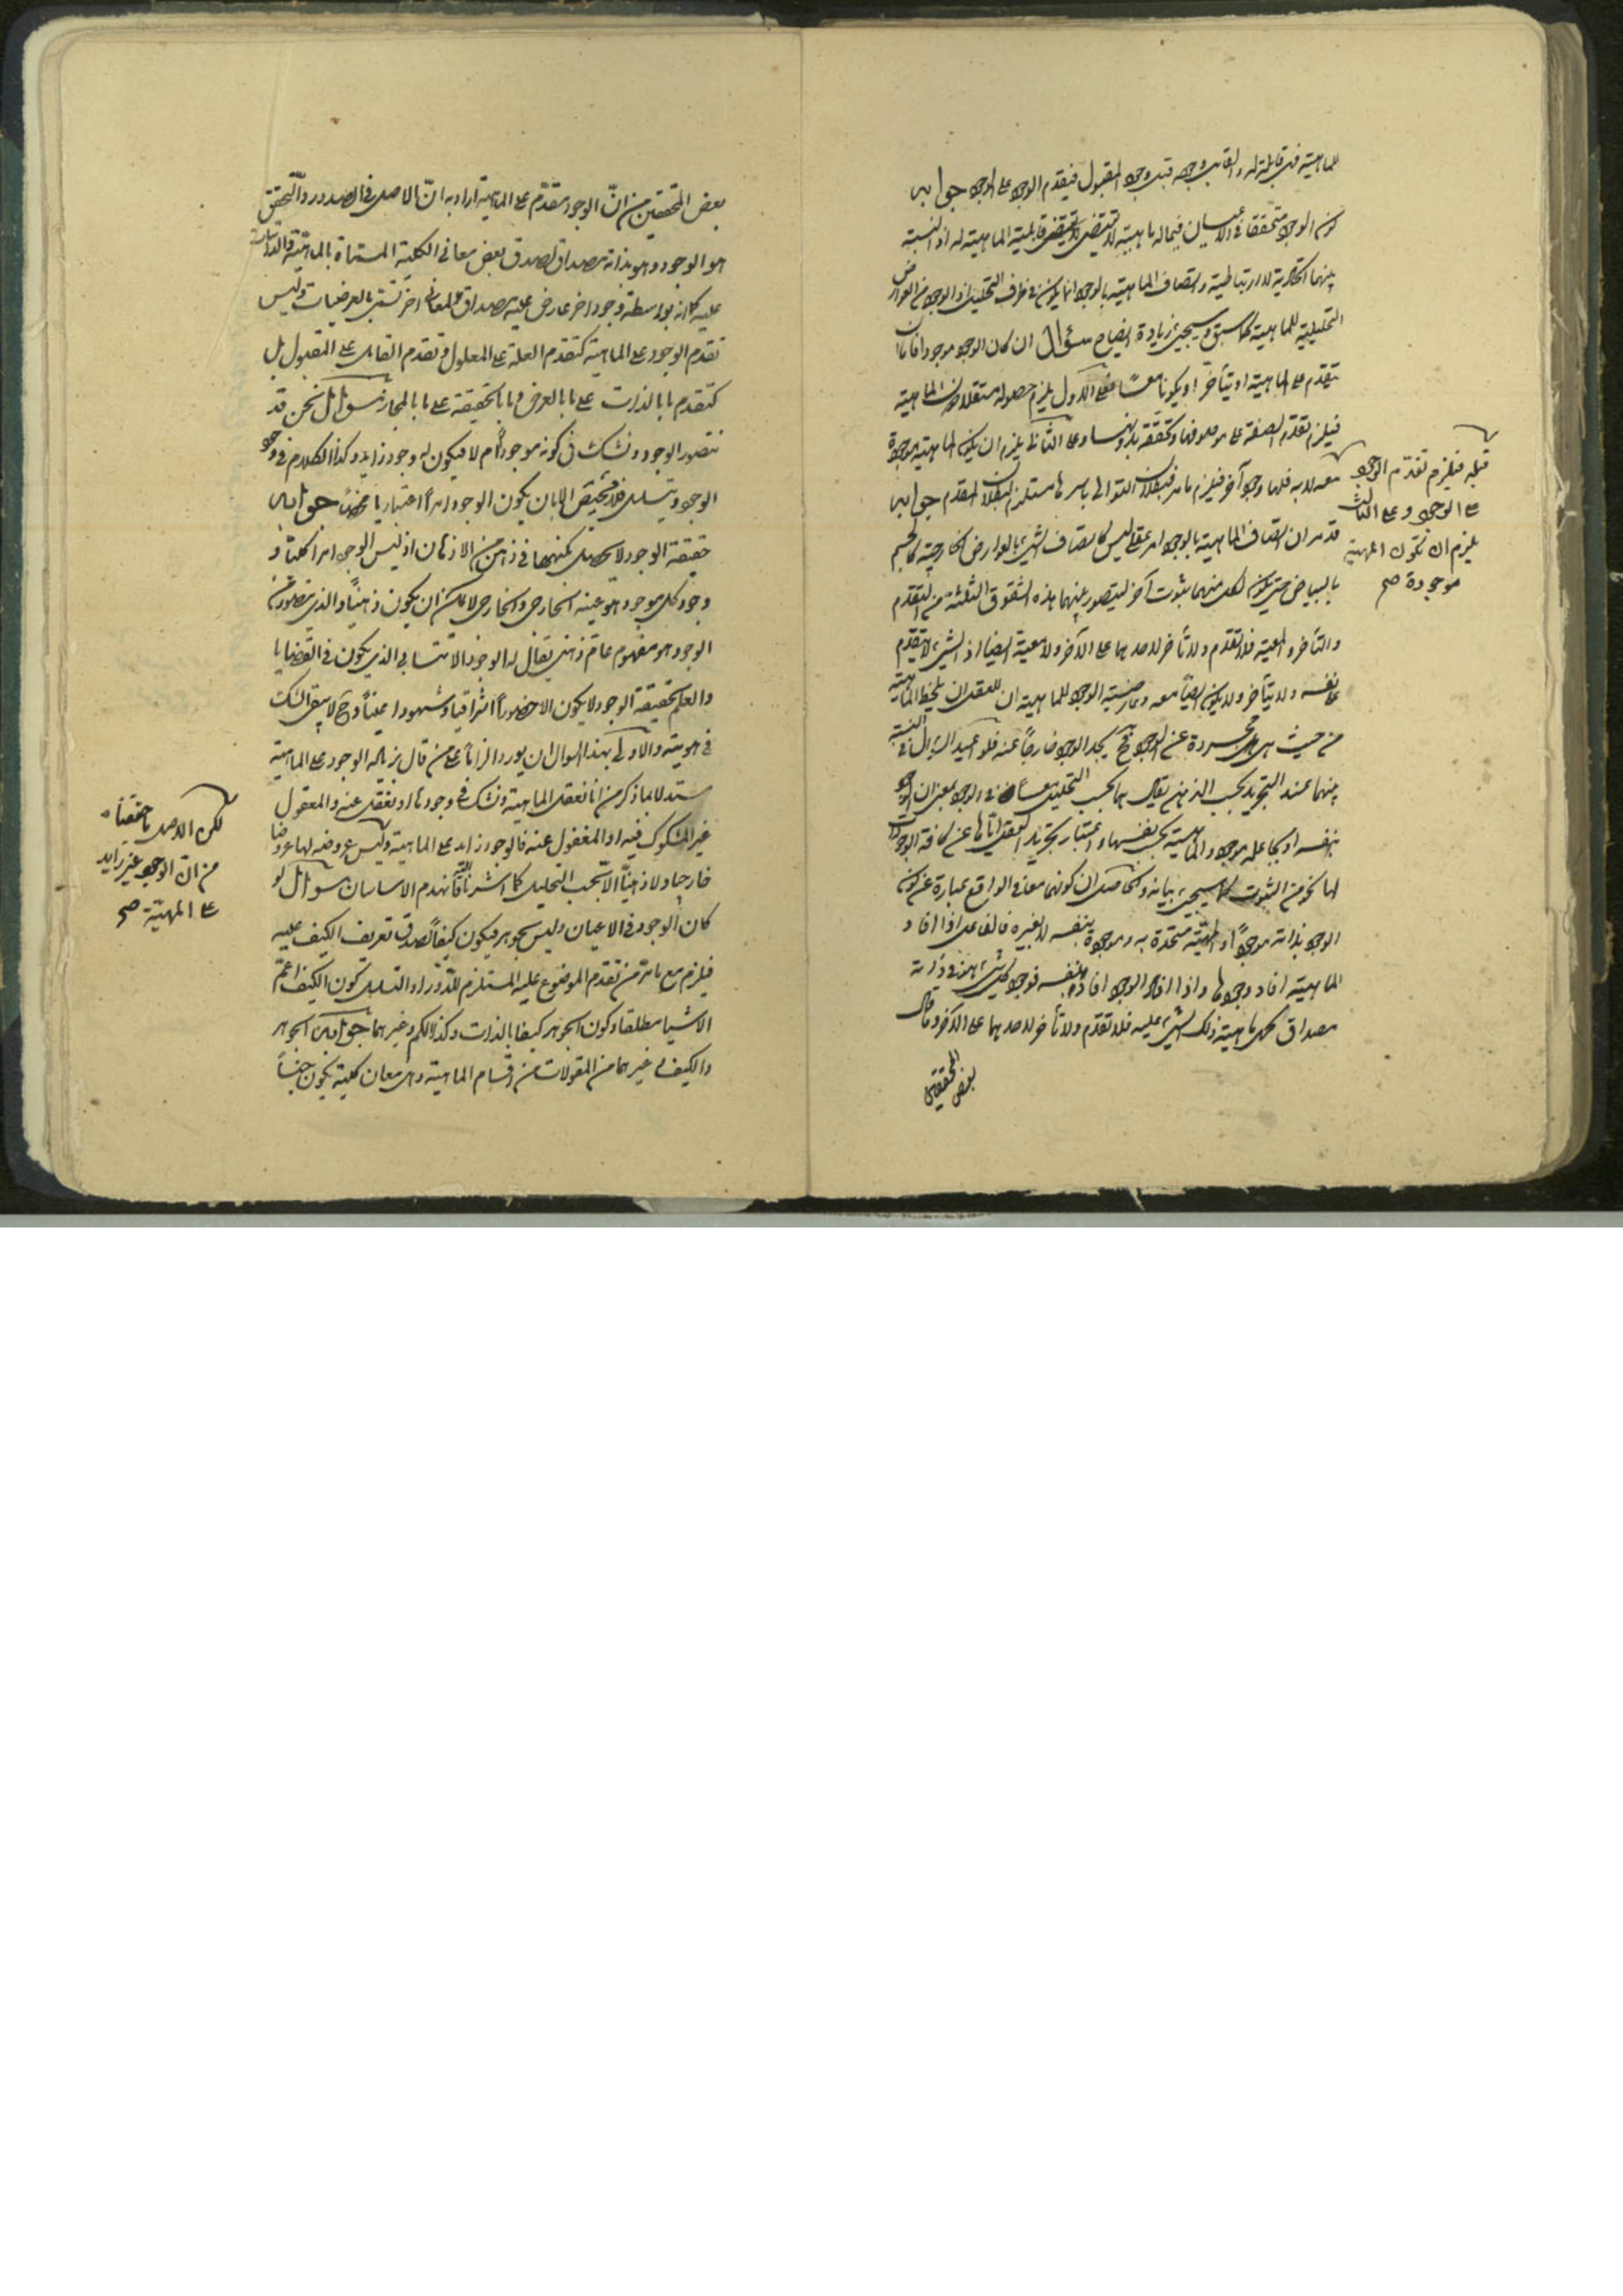 للماهية فهى قابلة له والقابل وجوده قبل وجود المقبول فيتقدم الوجود على الوجود جوابه
كون الوجود متحققا فى الاعيان فيما له ماهية لا تقتضى قابلية الماهية له اذ النسبة
بينهما اتحادية لا ارتباطية واتصاف الماهية بالوجود انما يكون فى ظرف التحليل اذ الوجود من العوارض
التحليلية للماهية كما سبق وسيجىء زيادة ايضاح سؤال ان كان الوجود موجودا فاما ان
يتقدم على الماهية او يتأخر او يكونا معا فعلى الاول يلزم حصوله مستقلا دون الماهية
فيلزم تقدم الصفة على موصوفها وتحققه بدونها وعلى الثانى يلزم ان يكون الماهية موجودة
معه لا به فلها وجود آخر فيلزم ما مر فبطلان التوالى باسرها مستلزم لبطلان المقدم جوابه
قد مر ان اتصاف الماهية بالوجود امر عقلى ليس كاتصاف الشىء بالعوارض الخارجية كالجسم
بالبياض حتى يكون لكل منهما ثبوت آخر ليتصور بينهما هذه الشقوق الثلثة من التقدم
والتأخر والمعية فلا تقدم ولا تأخر لاحدهما على الآخر ولا معية ايضا اذ الشىء لا يتقدم
على نفسه ولا يتأخر ولا يكون ايضا معه وعارضية الوجود للماهية ان للعقل ان يلاحظ الماهية
من حيث هى هى مجردة عن الوجود فح يجد الوجود خارجا عنه فلو اعيد السؤال فى النسبة
بينهما عند التجريد بحسب الذهن يقال هما بحسب التحليل معا فى الوجود بمعنى ان الوجود
بنفسه او بجاعله موجود والماهية بحسب نفسها واعتبار تجريد العقل اياها عن كافة الوجودات
لها نحو من الثبوت كما سيجىء بيانه والحاصل ان كونهما معا فى الواقع عبارة عن كون
الوجود بذاته موجودا والمهية متحدة به وموجودة بنفسه لا بغيره فالفاعل اذا افاد
الماهية افاد وجودها واذا افاد الوجود افاده بنفسه فوجود كل شىء هو فى ذاته
مصداق لحمل ماهية ذلك الشىء عليه فلا تقدم ولا تأخر لاحدهما على الآخر وما قال
بعض المحققين
قبله فيلزم تقدم الوجود
على الوجود وعلى الثالث
يلزم ان تكون المهية
موجودة صح
بعض المحققين من ان الوجود متقدم على الماهية اراد به ان الاصل فى الصدور والتحقق
هو الوجود وهو بذاته مصداق لصدق بعض معانى الكلية المسماة بالماهية والذاتيات
عليه كما انه بواسطة وجود اخر عارض عليه مصداق لمعان اخر تسمى بالعرضيات وليس
تقدم الوجود على الماهية كتقدم العلة على المعلول وتقدم القابل على المقبول بل
كتقدم ما بالذات على ما بالعرض وما بالحقيقة على ما بالمجاز سؤال نحن قد
نتصور الوجود ونشك فى كونه موجودا ام لا فيكون له وجود زايد وكذا الكلام فى وجود
الوجود ويتسلسل فلا محيص الا بان يكون الوجود امرا اعتباريا محضا جوابه
حقيقة الوجود لا تحصل بكنهها فى ذهن من الاذهان اذ ليس الوجود امرا كليا و
وجود كل موجود هو عينه الخارجى والخارجى لا يمكن ان يكون ذهنيا والذى يتصور من
الوجود هو مفهوم عام ذهنى يقال له الوجود الانتسابى الذى يكون فى القضايا
والعلم بحقيقة الوجود لا يكون الا حضورا اشراقيا وشهودا عينيا وح لا يبقى الشك
فى هويته والاولى بهذا السؤال ان يورد الزاما على من قال بزيادة الوجود على الماهية
مستدلا بما ذكر من انا نعقل الماهية ونشك فى وجودها او نغفل عنه والمعقول
غير المشكوك فيه او المغفول عنه فالوجود زايد على الماهية وليس عروضه لها عروضا
خارجيا ولا ذهنيا الا بحسب التحليل كما اشرنا اليه فانهدم الاساسان سؤال لو
كان الوجود فى الاعيان وليس بجوهر فيكون كيفا لصدق تعريف الكيف عليه
فيلزم مع ما مر من تقدم الموضوع عليه المستلزم للدور او التسلسل كون الكيف اعم
الاشيا مطلقا وكون الجوهر كيفا بالذات وكذا الكم وغيرهما جوابه الجوهر
والكيف وغيرهما من المقولات من اقسام الماهية وهى معان كلية يكون جنسا
لكن الاصل ما حققناه
من ان الوجود غير زايد
على المهية صح